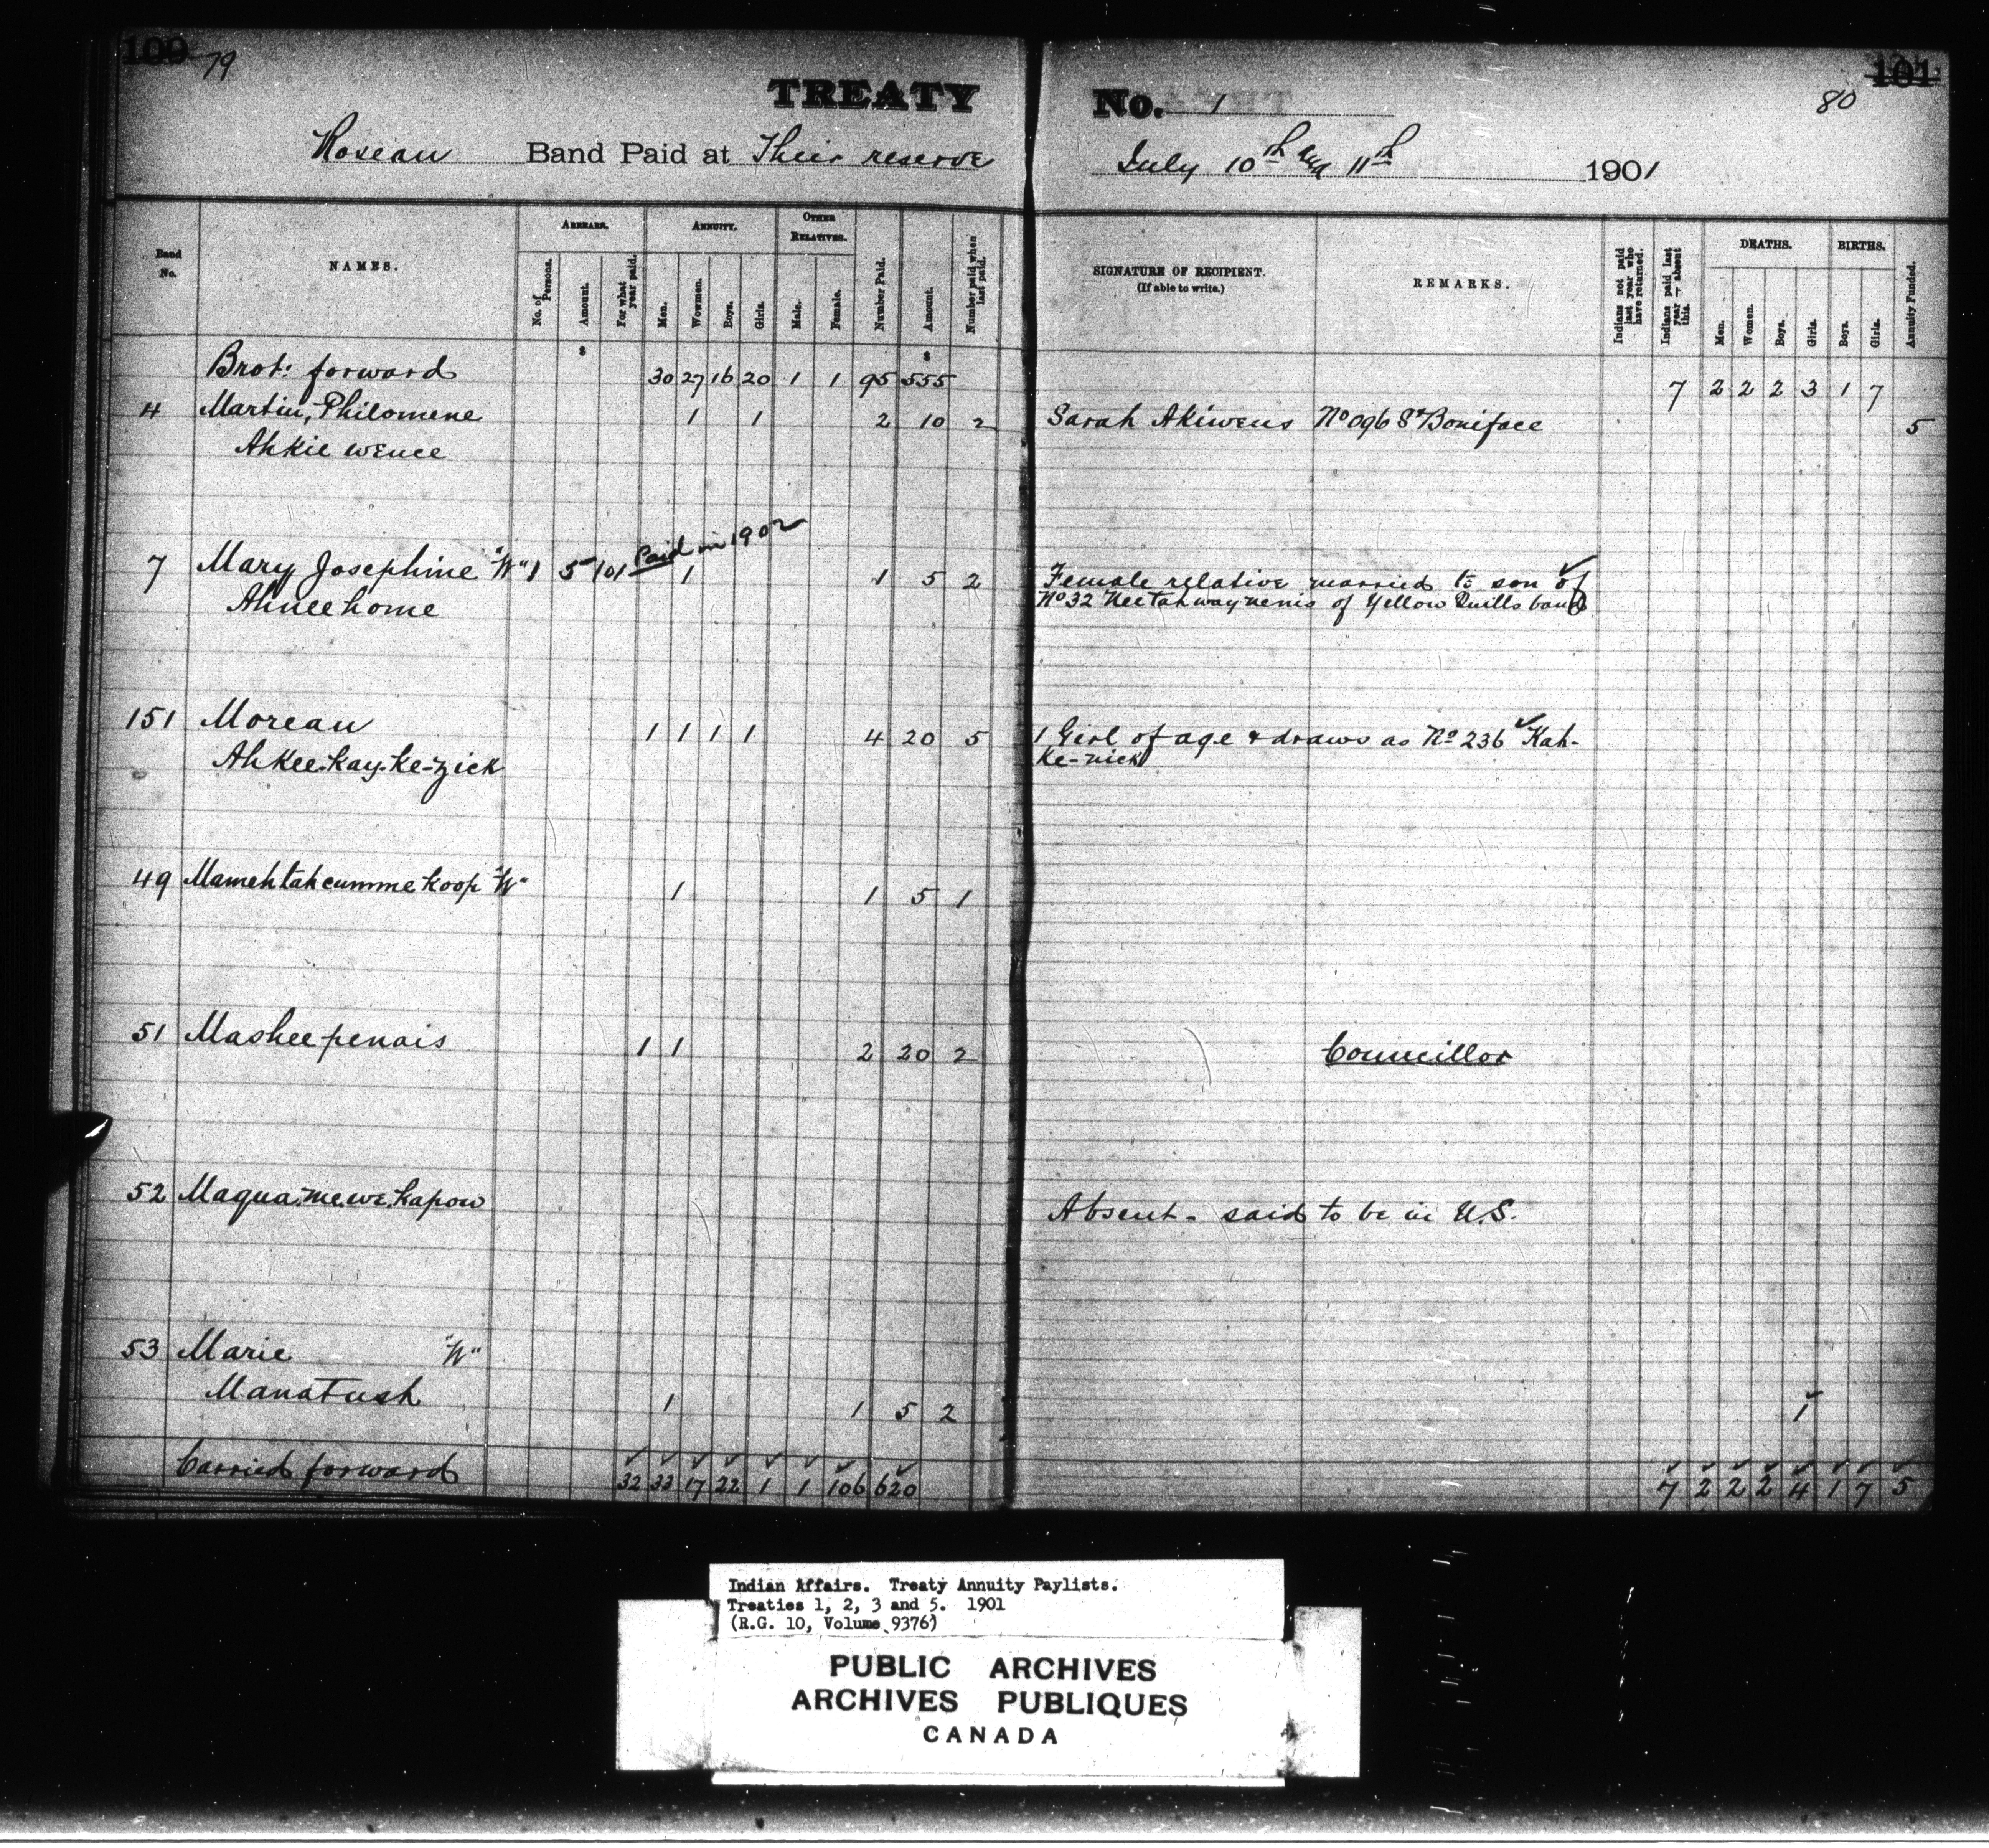 100 79
TREATY No. 1
80 101
Roseau Band Paid at Their reserve July 10th and 11th 1901
Band No.
NAMES.
ARREARS.
No. of Persons.
Amount.
For what year paid.
ANNUITY.
Men.
Wowmen.
Boys.
Girls.
OTHER RELATIVES.
Male.
Female.
Number Paid.
Amount.
Number paid when last paid.
SIGNATURE OF RECIPIENT.
(If able to write.)
REMARKS.
Indians not paid last year who have returned.
Indians paid last year — absent this.
DEATHS.
Men.
Women.
Boys.
Girls.
BIRTHS.
Boys.
Girls.
Annuity Funded.
$ $
Brot: forward 30 27 16 20 1 1 95 555 7 2 2 2 3 1 7
4 Martin, Philomene 1 1 2 10 2 Sarah Akiwens No 096 St Boniface 5
Ahkie wence
Paid in 1902
7 Mary Josephine "W" 1 5 101 1 1 5 2 Female relative married to son of
Ahneehome No 32 Neetahwaynenis of Yellow Quills band
151 Moreau 1 1 1 1 4 20 5 1 Girl of age & draws as No 236 Kah-
Ahkee-kay-ke-zick ke-nick
49 Mamehtahcumme koop "W" 1 1 5 1
51 Mashee penais 1 1 2 20 2 Councillor
52 Maqua.me.we.kapow Absent - said to be in U.S.
53 Marie "W"
Manatush 1 1 5 2 1
Carried forward 32 33 17 22 1 1 106 620 7 2 2 2 4 1 7 5
Indian Affairs. Treaty Annuity Paylists.
Treaties 1, 2, 3 and 5. 1901
(R.G. 10, Volume 9376)
PUBLIC ARCHIVES
ARCHIVES PUBLIQUES
CANADA